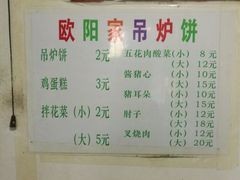 欧阳家吊炉饼
吊炉饼 2元
鸡蛋糕 3元
拌花菜(小) 2元
(大) 5元
五花肉酸菜(小) 8元
(大) 12元
酱猪心 (小) 10元
(大) 15元
猪耳朵 (小) 10元
(大) 15元
肘子 (小) 12元
(大) 18元
叉烧肉 (小) 12元
(大) 20元